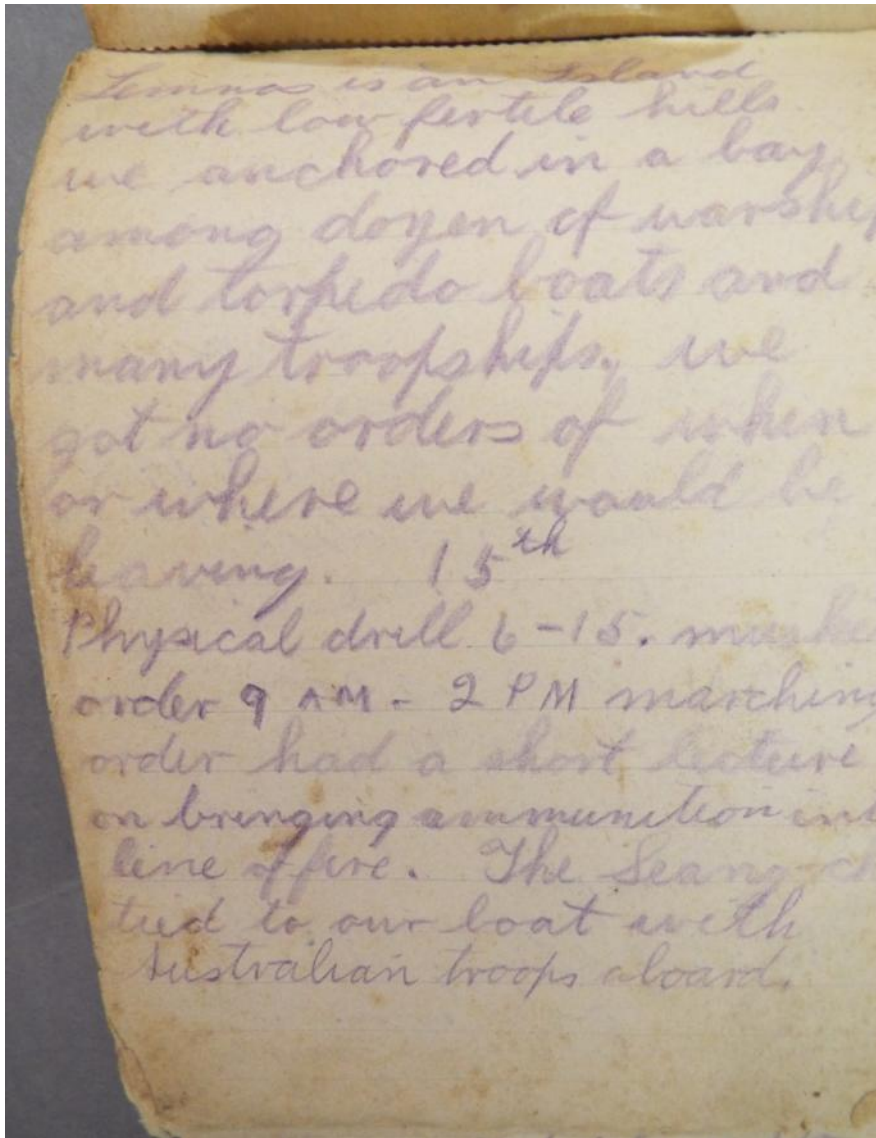 Lemnos is an Island
with low fertile hills
we anchored in a bay
among dozen of warship
and torpedo boats and
many troopships. we
got no orders of when
or where we would be
leaving. 15th
Physical drill 6-15.
order 9 AM - 2 PM marching
order had a short lecture
on bringing ammunition int
line of fire. The Seang
tied to our boat with
Australian troops aboard.